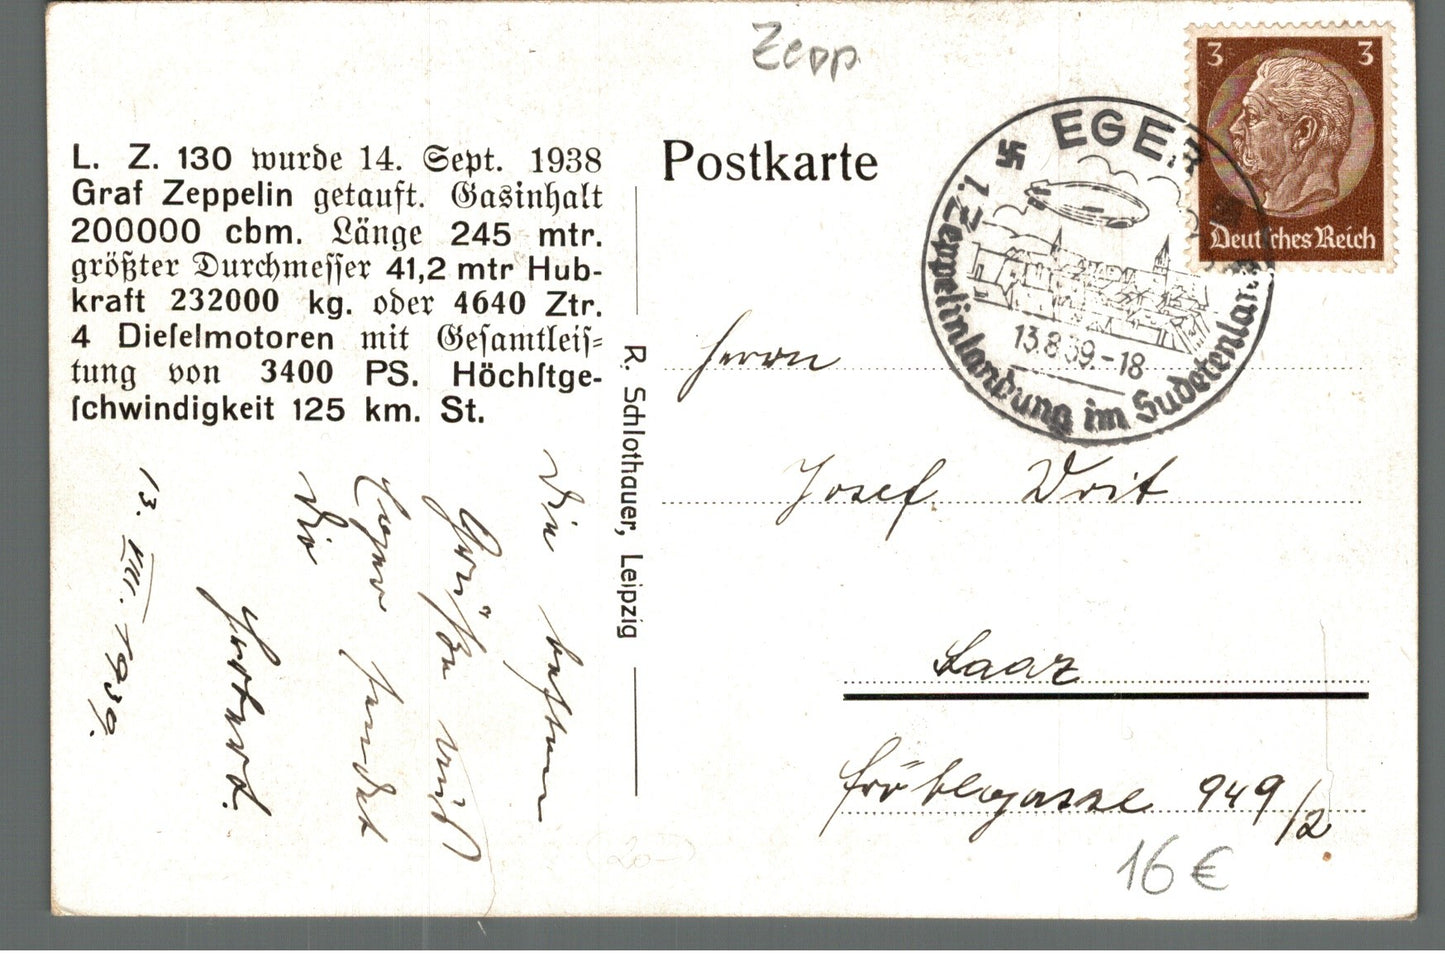 Zepp.
L. Z. 130 wurde 14. Sept. 1938
Graf Zeppelin getauft. Gasinhalt
200000 cbm. Länge 245 mtr.
größter Durchmeſſer 41,2 mtr Hub-
kraft 232000 kg. oder 4640 Ztr.
4 Dieſelmotoren mit Geſamtleiſ-
tung von 3400 PS. Höchſtge-
ſchwindigkeit 125 km. St.
Postkarte
3 3
Deutſches Reich
EGER
1. Zeppelinlandung im Sudetenland
13.8.39.-18
R. Schlothauer, Leipzig
Herrn
Josef
Saaz
Fröbelgasse 949/2
Die besten
Grüße aus
Eger sendet
Dir
Herbert.
13. VIII. 1939.
16 €
20-